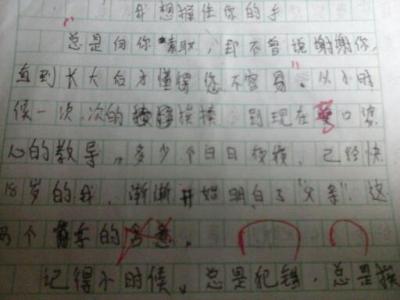 我想握住你的手
"总是向你索取，却不曾说谢谢你，
直到长大后才懂得您不容易"。从小时
候一次次的挨揍 到现在苦口婆
心的教导。多少个日日夜夜，已经快
18岁的我，渐渐开始明白了"父亲"这
两个字的含意。
记得小时候，总是犯错，总是挨